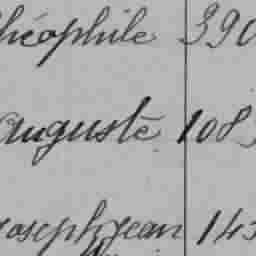 Théophile 390
Auguste 108
Joseph Jean 145